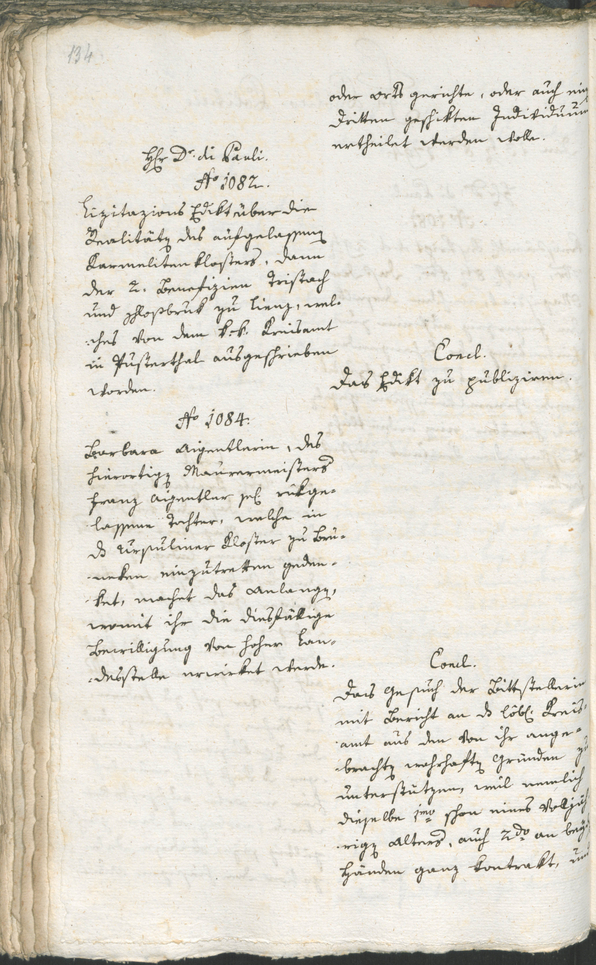 134
oder Orts gerichte, oder auch ein
dritten geschikten Individuum
ertheilet werden wolle.
H͞r Dr. di Pauli.
No 1082.
Lizitazions Edikt über die
Realitäten des aufgelassenen
Karmelitenklosters, dann
der 2. Benefizien Tristach
und Schloßbruk zu Lienz, wel-
ches von dem k. k. Kreisamt
in Pusterthal ausgeschrieben
worden.
Concl.
Das Edikt zu publiziren.
No 1084.
Barbara Aigentlerin, des
hierortigen Maurermeisters
Franz Aigentler sel. rükge-
lassene Tochter, welche in
das Ursuliner Kloster zu Bru-
neken einzutretten geden-
ket, machet das Anlangen,
womit ihr die diesfällige
Bewilligung von hoher Lan-
desstelle erwirket werde.
Concl.
Das Gesuch der Bittstellerin
mit Bericht an das löbl. Kreis-
amt aus den von ihr ange-
brachten wahrhaften Gründen zu
unterstützen, weil nemlich
dieselbe 1mo schon eines volljäh-
rigen Alters, auch 2do an beyd
Händen ganz kontrakt, und